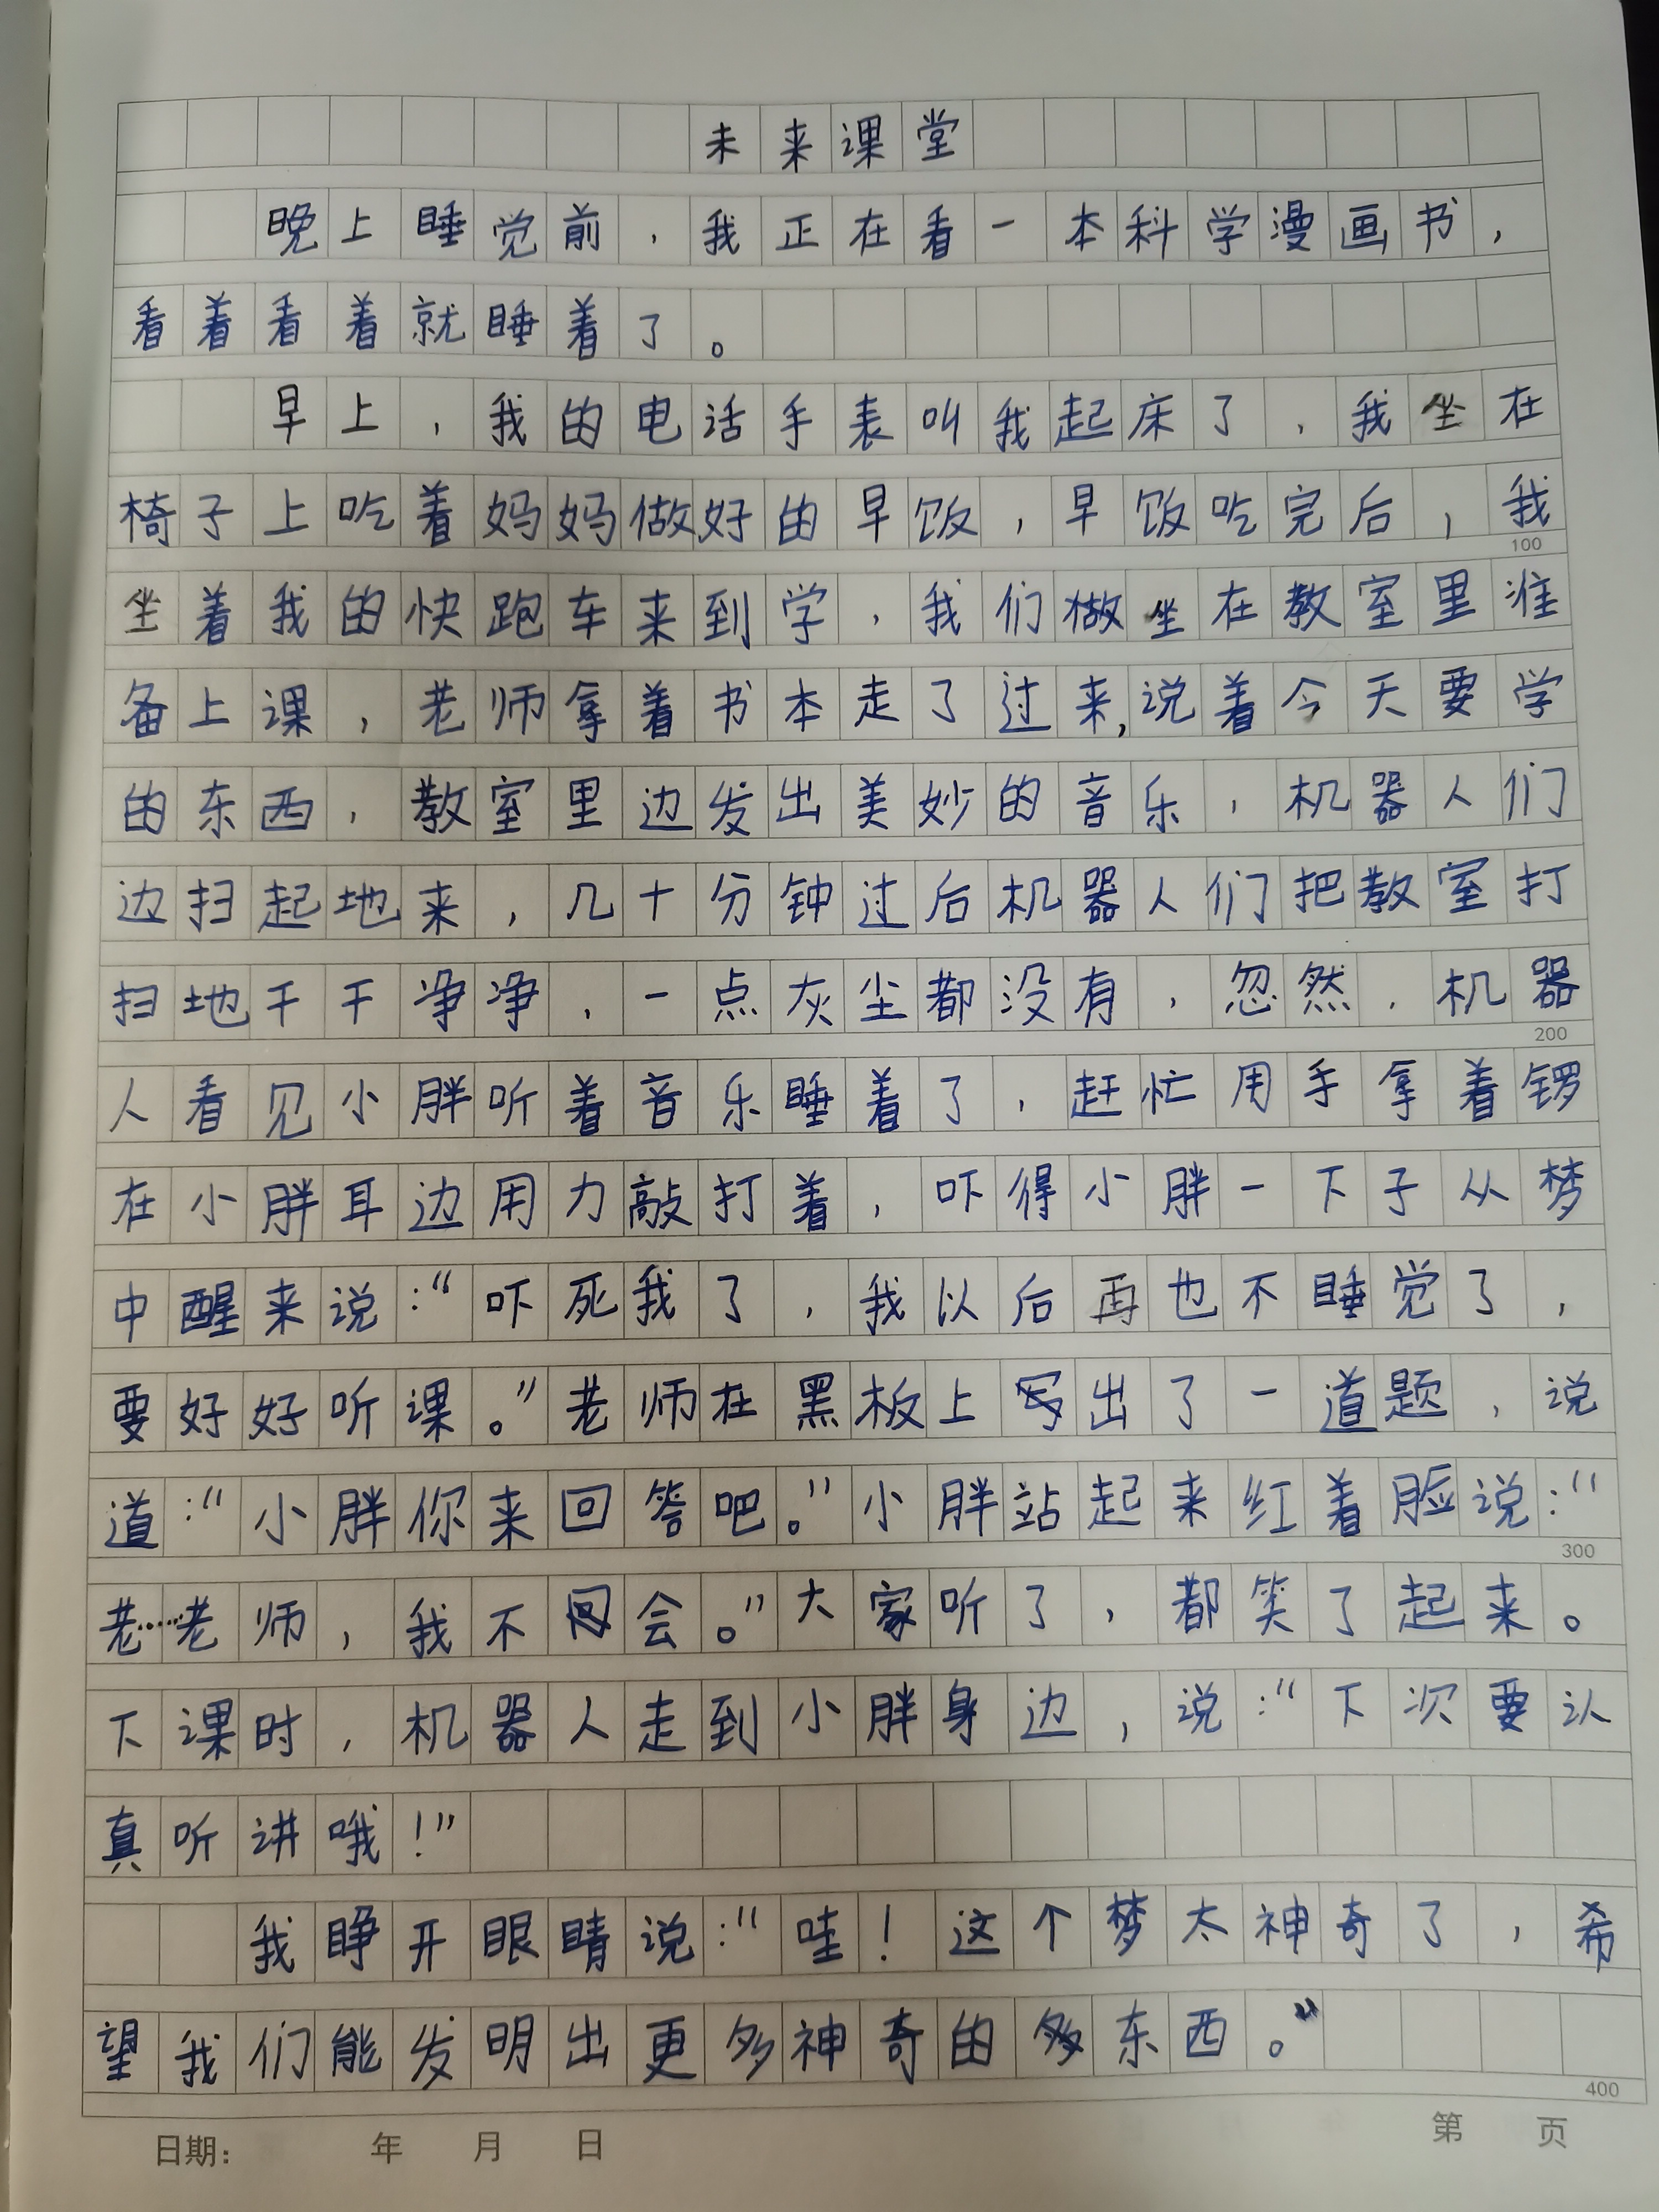 未来课堂
晚上睡觉前，我正在看一本科学漫画书，
看着看着就睡着了。
早上，我的电话手表叫我起床了，我坐在
椅子上吃着妈妈做好的早饭，早饭吃完后，我
100
坐着我的快跑车来到学，我们做坐在教室里准
备上课，老师拿着书本走了过来，说着今天要学
的东西，教室里边发出美妙的音乐，机器人们
边扫起地来，几十分钟过后机器人们把教室打
扫地干干净净，一点灰尘都没有，忽然，机器
200
人看见小胖听着音乐睡着了，赶忙用手拿着锣
在小胖耳边用力敲打着，吓得小胖一下子从梦
中醒来说：“吓死我了，我以后再也不睡觉了，
要好好听课。”老师在黑板上写出了一道题，说
道：“小胖你来回答吧。”小胖站起来红着脸说：“
300
老……老师，我不会。”大家听了，都笑了起来。
下课时，机器人走到小胖身边，说：“下次要认
真听讲哦！”
我睁开眼睛说：“哇！这个梦太神奇了，希
望我们能发明出更多神奇的东西。”
400
日期： 年 月 日 第 页